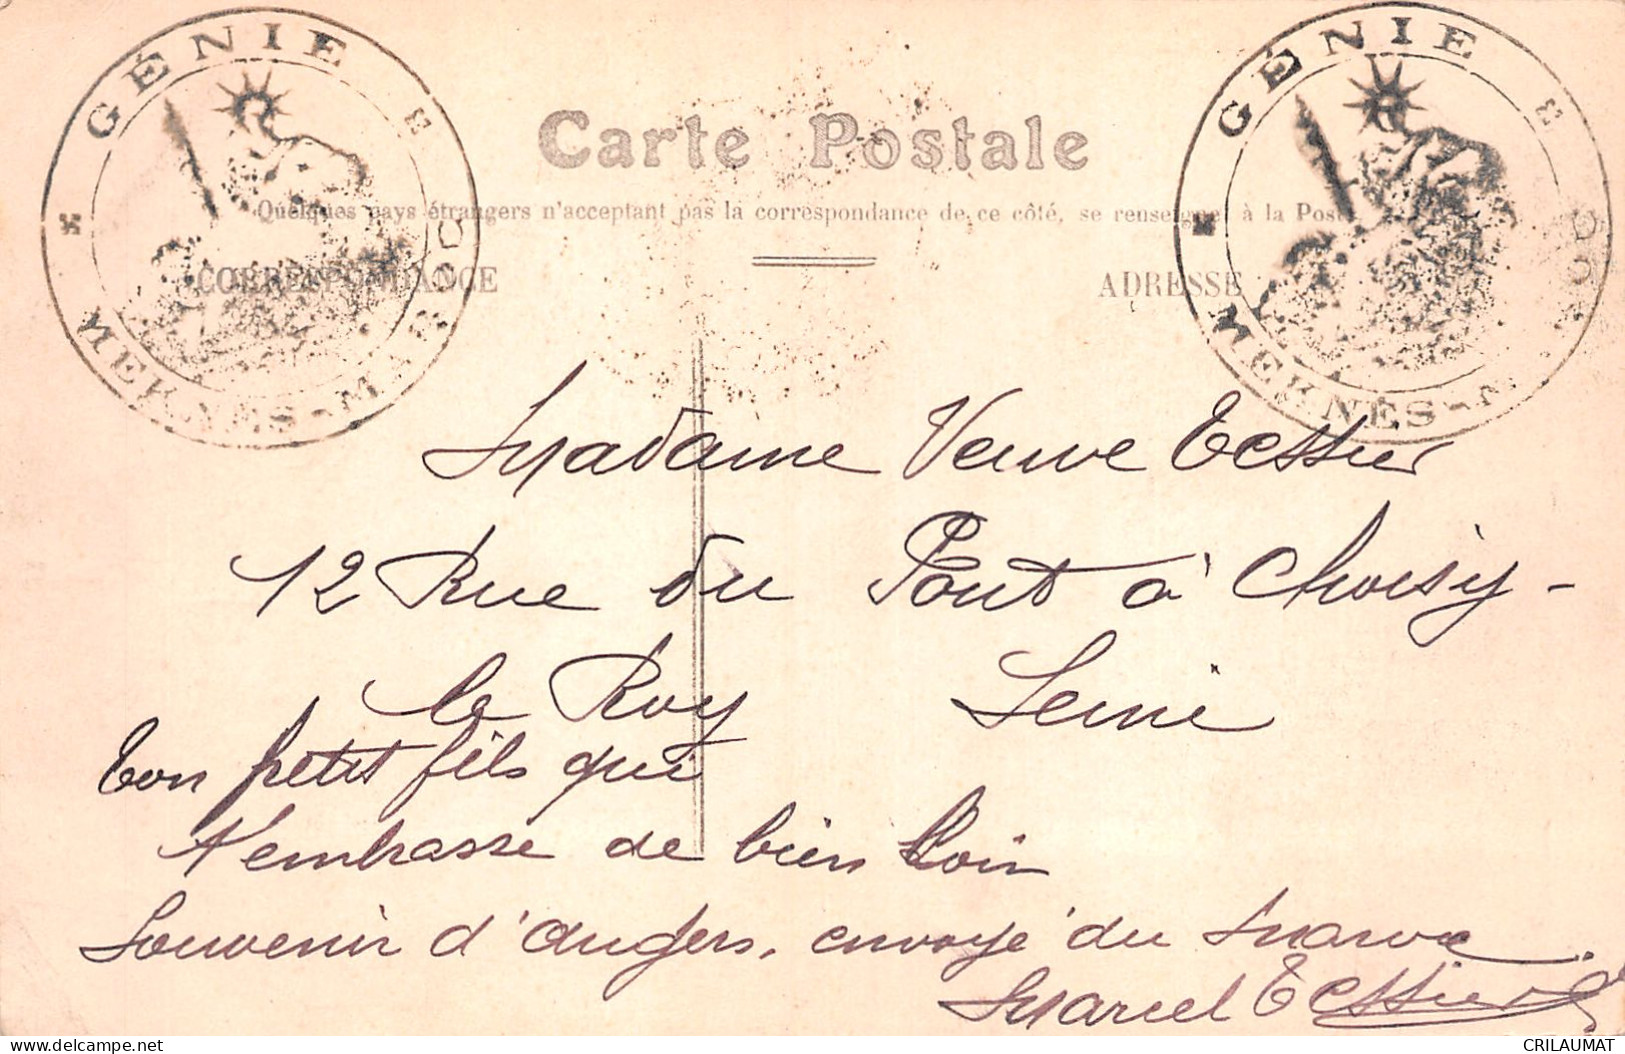 GÉNIE
MEKNÈS-MAROC
GÉNIE
MEKNÈS-M
Carte Postale
Quelques pays étrangers n'acceptant pas la correspondance de ce côté, se renseigner à la Poste
CORRESPONDANCE
ADRESSE
Madame Veuve Tessier
12 Rue du Pont à Choisy-
le Roy Seine
Ton petit fils qui
t'embrasse de bien loin
Souvenir d'Angers, envoyé du Maroc
Marcel Tessier
CRILAUMAT
delcampe.net